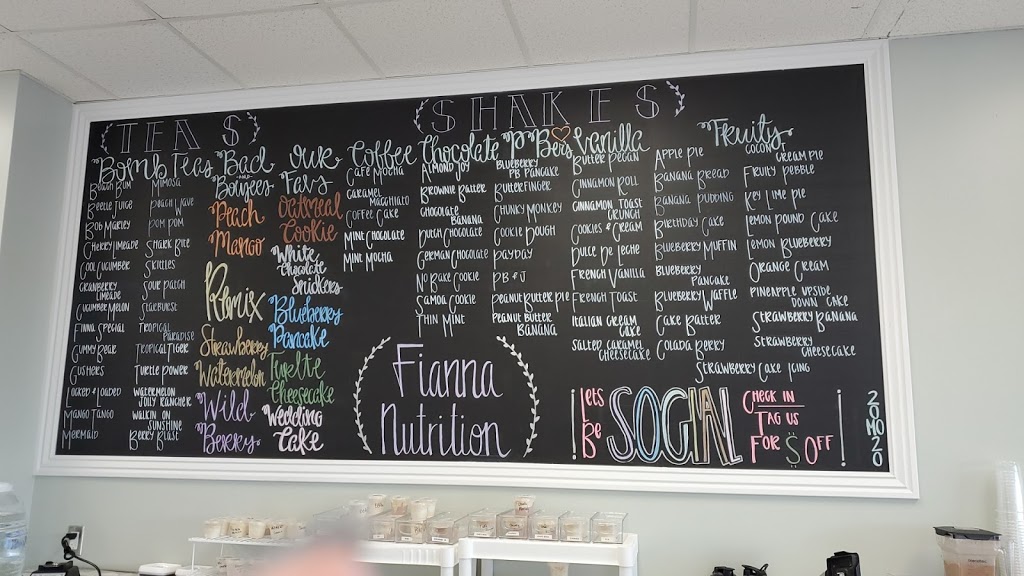 TEAS
Bomb Teas
Beach Bum
Beetle Juice
Bob Marley
Cherry Limeade
Cool Cucumber
Cranberry
Limeade
Cucumber Melon
Finna Special
Gummy Bear
Gushers
Locked & Loaded
Mango Tango
Mermaid
Mimosa
Poach Wave
Pom Pom
Shark Bite
Skittles
Sour Patch
Starburst
Tropical
Paradise
Tropical Tiger
Turtle Power
Watermelon
Jolly Rancher
Walkin on
Sunshine
Berry Blast
Bad
and
Boujees
Peach
Mango
Remix
Strawberry
Watermelon
Wild
Berry
SHAKES
Our
Favs
Oatmeal
Cookie
White
Chocolate
Snickers
Blueberry
Pancake
Turlte
Cheesecake
Wedding
Cake
Coffee
Cafe Mocha
Caramel
Macchiato
Coffee Cake
Mint Chocolate
Mint Mocha
Chocolate
Almond Joy
Brownie Batter
Chocolate
Banana
Dutch Chocolate
German Chocolate
No Bake Cookie
Samoa Cookie
Thin Mint
PBers
Blueberry
PB Pancake
Butterfinger
Chunky Monkey
Cookie Dough
Payday
PB & J
Peanut Butter Pie
Peanut Butter
Banana
Vanilla
Butter Pecan
Cinnamon Roll
Cinnamon Toast
Crunch
Cookies & Cream
Dulce De Leche
French Vanilla
French Toast
Italian Cream
Cake
Salted Caramel
Cheesecake
Fruity
Apple Pie
Banana Bread
Banana Pudding
Birthday Cake
Blueberry Muffin
Blueberry
Pancake
Blueberry Waffle
Cake Batter
Colada Berry
Coconut
Cream Pie
Fruity Pebble
Key Lime Pie
Lemon Pound Cake
Lemon Blueberry
Orange Cream
Pineapple Upside
Down Cake
Strawberry Banana
Strawberry
Cheesecake
Strawberry Cake Icing
Fianna
Nutrition
Lets
Be
SOCIAL
Check in
Tag us
For $ Off
20MO20